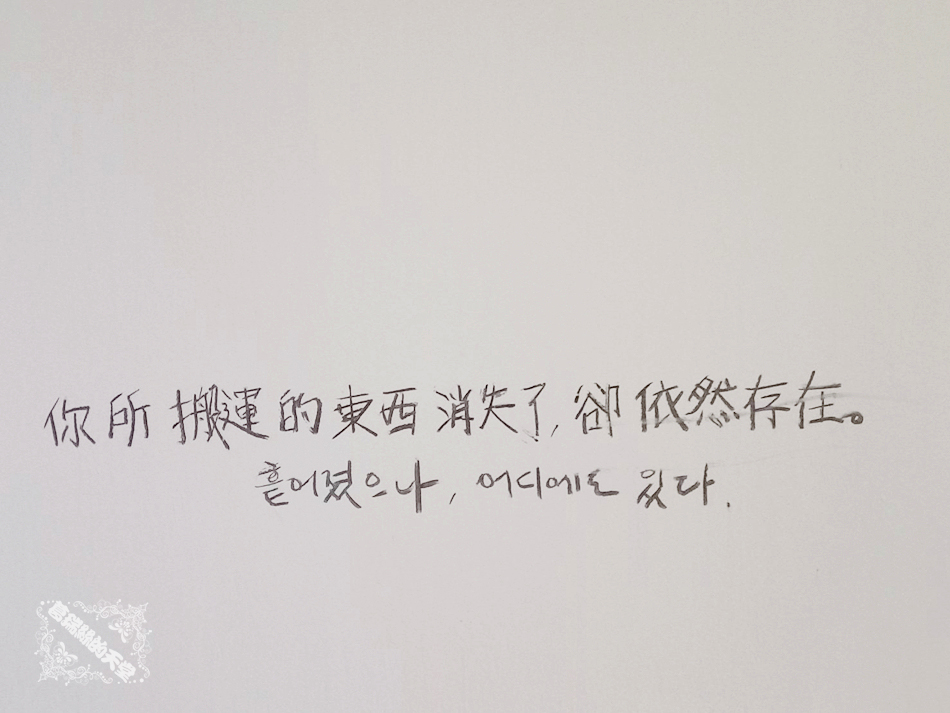 你所搬運的東西消失了,卻依然存在。
흩어졌으나, 어디에도 있다.